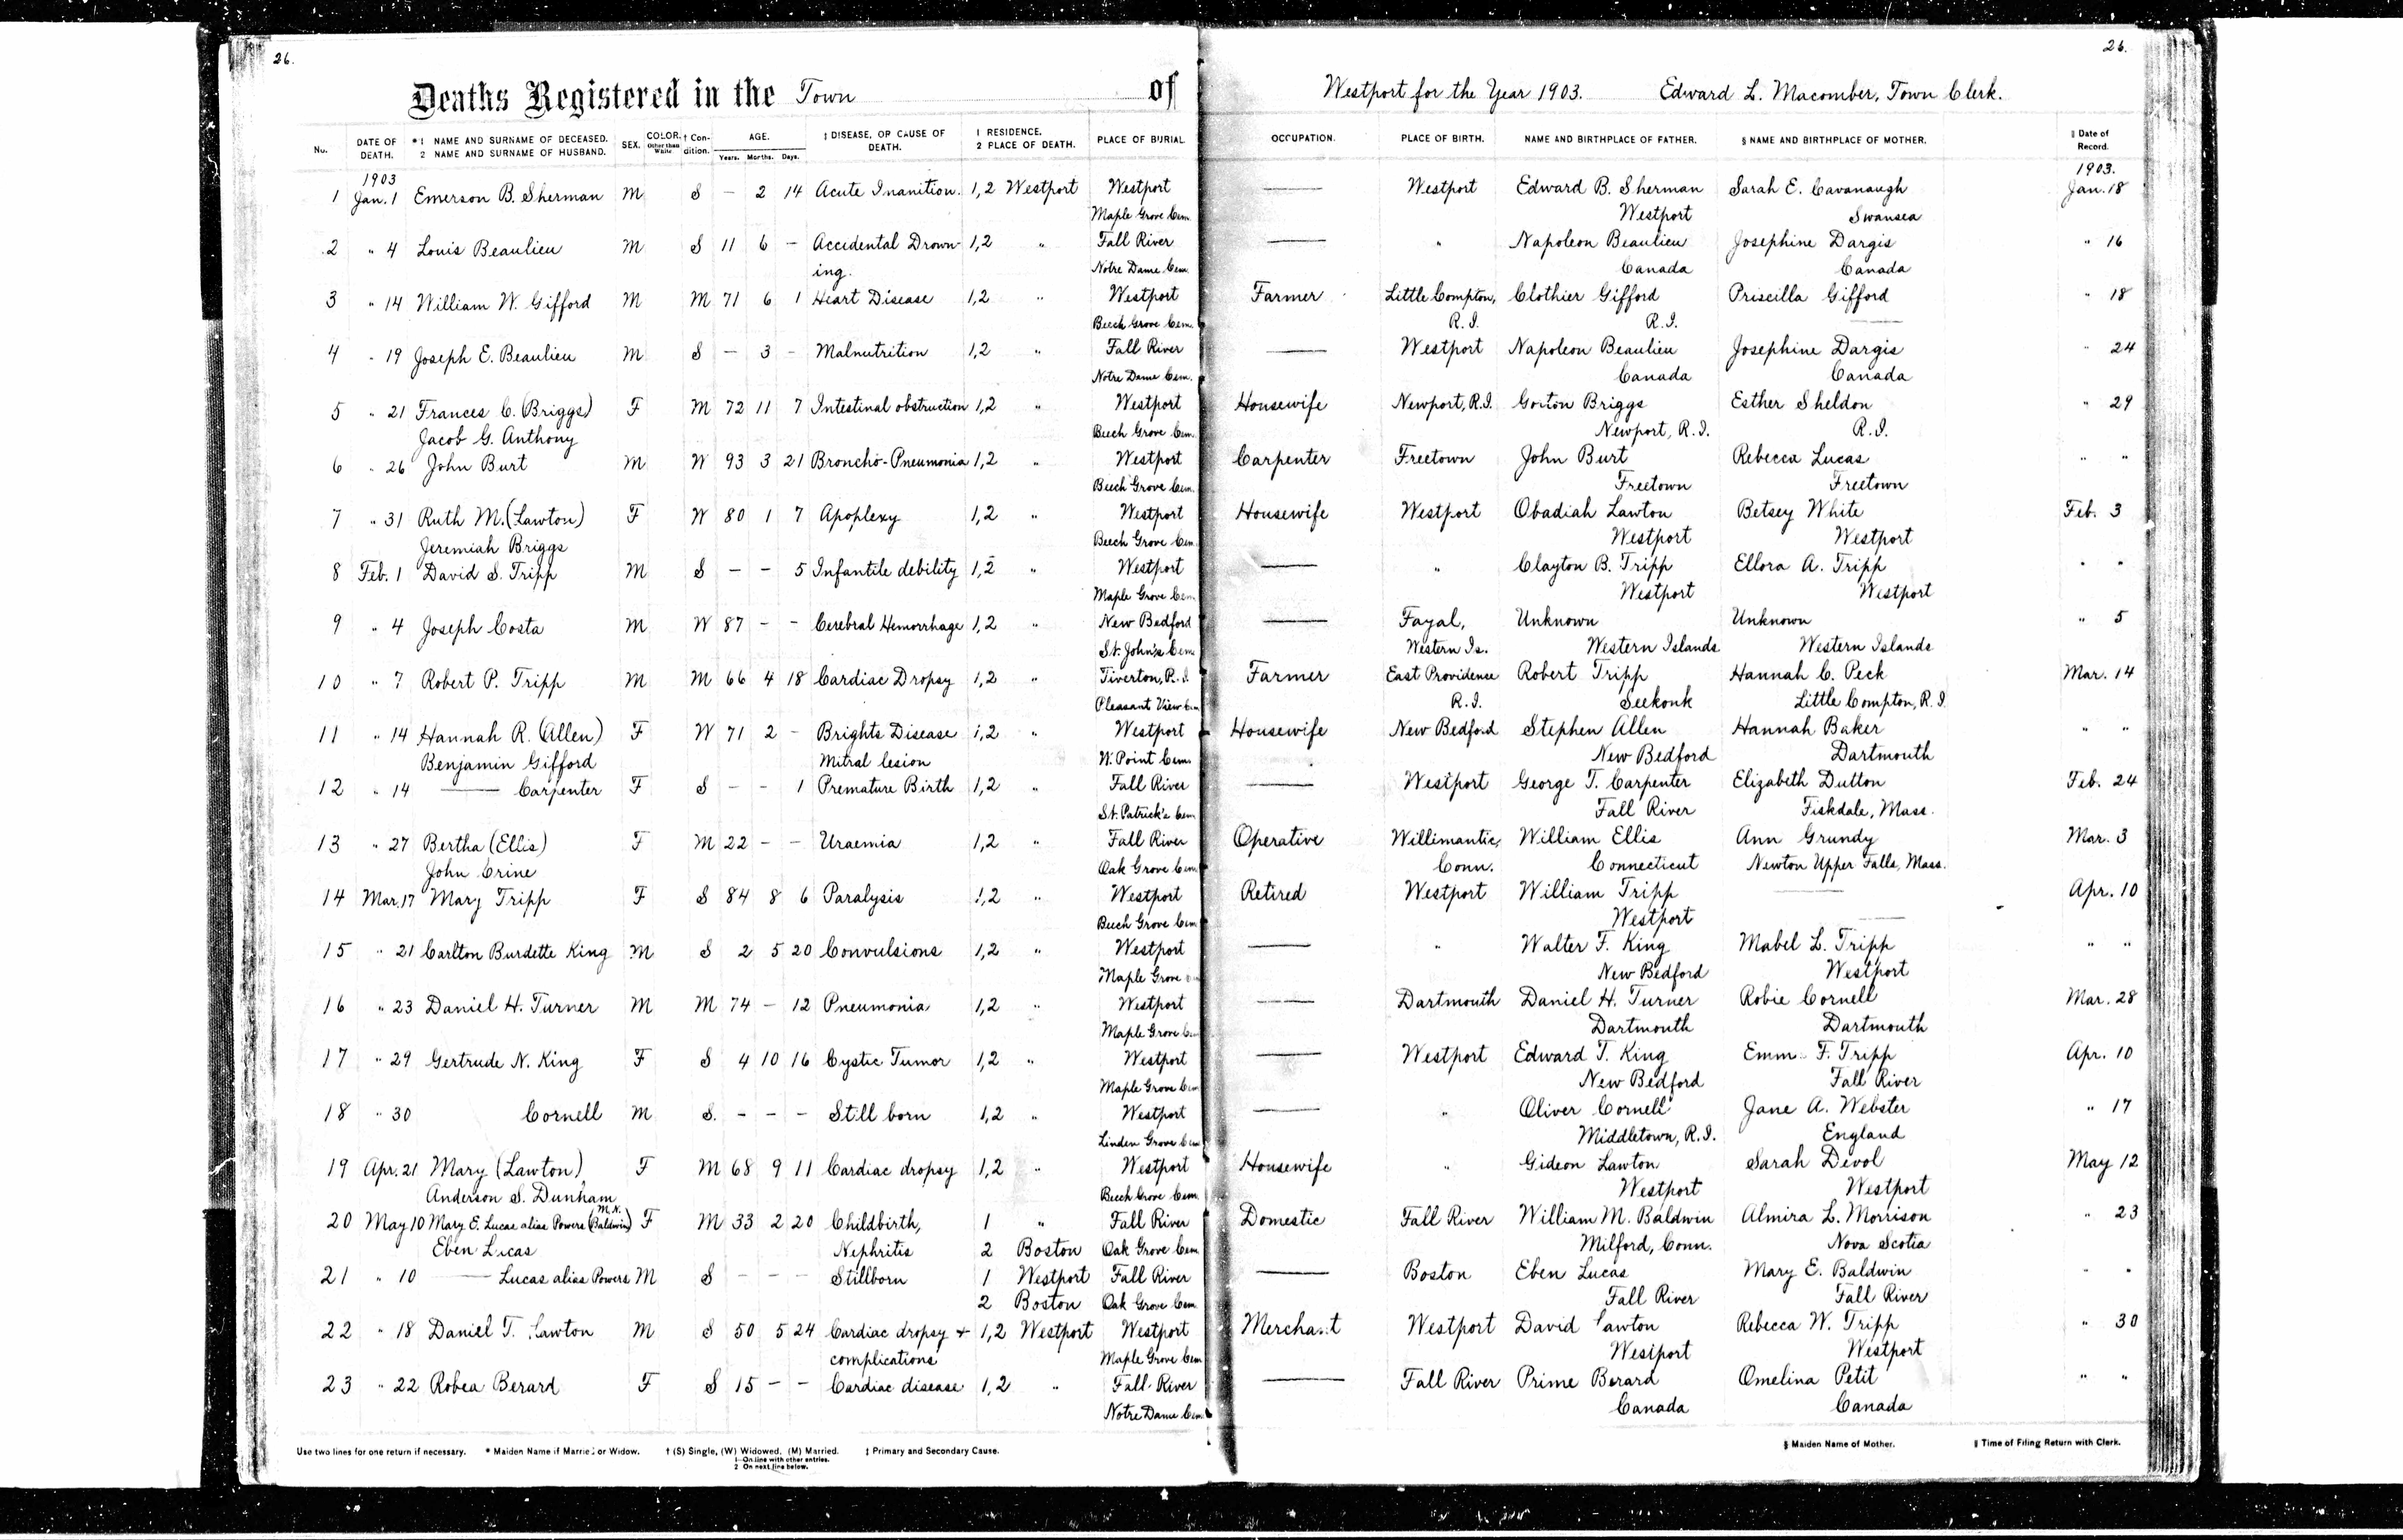 26.
26.
Deaths Registered in the Town of Westport for the Year 1903. Edward L. Macomber, Town Clerk.
No. DATE OF DEATH. *1 NAME AND SURNAME OF DECEASED. 2 NAME AND SURNAME OF HUSBAND. SEX. COLOR. Other than White † Condition. AGE. Years. Months. Days. ‡ DISEASE, OR CAUSE OF DEATH. 1 RESIDENCE. 2 PLACE OF DEATH. PLACE OF BURIAL. OCCUPATION. PLACE OF BIRTH. NAME AND BIRTHPLACE OF FATHER. § NAME AND BIRTHPLACE OF MOTHER. ‖ Date of Record.
1903 1903.
1 Jan. 1 Emerson B. Sherman M S – 2 14 Acute Inanition. 1,2 Westport Westport —— Westport Edward B. Sherman Sarah E. Cavanaugh Jan. 18
Maple Grove Cem. Westport Swansea
2 " 4 Louis Beaulieu M S 11 6 – Accidental Drown- 1,2 " Fall River —— " Napoleon Beaulieu Josephine Dargis " 16
ing. Notre Dame Cem. Canada Canada
3 " 14 William W. Gifford M M 71 6 1 Heart Disease 1,2 " Westport Farmer Little Compton, Clothier Gifford Priscilla Gifford " 18
Beech Grove Cem. R.I. R.I. ——
4 " 19 Joseph E. Beaulieu M S – 3 – Malnutrition 1,2 " Fall River —— Westport Napoleon Beaulieu Josephine Dargis " 24
Notre Dame Cem. Canada Canada
5 " 21 Frances C. (Briggs) F M 72 11 7 Intestinal obstruction 1,2 " Westport Housewife Newport, R.I. Gorton Briggs Esther Sheldon " 29
Jacob G. Anthony Beech Grove Cem. Newport, R.I. R.I.
6 " 26 John Burt M W 93 3 21 Broncho-Pneumonia 1,2 " Westport Carpenter Freetown John Burt Rebecca Lucas " "
Beech Grove Cem. Freetown Freetown
7 " 31 Ruth M. (Lawton) F W 80 1 7 Apoplexy 1,2 " Westport Housewife Westport Obadiah Lawton Betsey White Feb. 3
Jeremiah Briggs Beech Grove Cem. Westport Westport
8 Feb. 1 David S. Tripp M S – – 5 Infantile debility 1,2 " Westport —— " Clayton B. Tripp Ellora A. Tripp " "
Maple Grove Cem. Westport Westport
9 " 4 Joseph Costa M W 87 – – Cerebral Hemorrhage 1,2 " New Bedford —— Fayal, Unknown Unknown " 5
St. John's Cem. Western Is. Western Islands Western Islands
10 " 7 Robert P. Tripp M M 66 4 18 Cardiac Dropsy 1,2 " Tiverton, R.I. Farmer East Providence Robert Tripp Hannah C. Peck Mar. 14
Pleasant View Cem R.I. Seekonk Little Compton, R.I.
11 " 14 Hannah R. (Allen) F W 71 2 – Brights Disease 1,2 " Westport Housewife New Bedford Stephen Allen Hannah Baker " "
Benjamin Gifford Mitral lesion W. Point Cem. New Bedford Dartmouth
12 " 14 —— Carpenter F S – – 1 Premature Birth 1,2 " Fall River —— Westport George T. Carpenter Elizabeth Dutton Feb. 24
St. Patrick's Cem Fall River Fiskdale, Mass.
13 " 27 Bertha (Ellis) F M 22 – – Uraemia 1,2 " Fall River Operative Willimantic, William Ellis Ann Grundy Mar. 3
John Crine Oak Grove Cem. Conn. Connecticut Newton Upper Falls, Mass.
14 Mar. 17 Mary Tripp F S 84 8 6 Paralysis 1,2 " Westport Retired Westport William Tripp —— Apr. 10
Beech Grove Cem Westport ——
15 " 21 Carlton Burdette King M S 2 5 20 Convulsions 1,2 " Westport —— " Walter F. King Mabel L. Tripp " "
Maple Grove New Bedford Westport
16 " 23 Daniel H. Turner M M 74 – 12 Pneumonia 1,2 " Westport —— Dartmouth Daniel H. Turner Robie Cornell Mar. 28
Maple Grove Cem Dartmouth Dartmouth
17 " 29 Gertrude N. King F S 4 10 16 Cystic Tumor 1,2 " Westport —— Westport Edward T. King Emm F. Tripp Apr. 10
Maple Grove Cem New Bedford Fall River
18 " 30 Cornell M S. – – – Still born 1,2 " Westport —— " Oliver Cornell Jane A. Webster " 17
Linden Grove Cem Middletown, R.I. England
19 Apr. 21 Mary (Lawton) F M 68 9 11 Cardiac dropsy 1,2 " Westport Housewife " Gideon Lawton Sarah Devol May 12
Anderson S. Dunham Beech Grove Cem. Westport Westport
M.N.
20 May 10 Mary E. Lucas alias Powers (Baldwin) F M 33 2 20 Childbirth, 1 " Fall River Domestic Fall River William M. Baldwin Almira L. Morrison " 23
Eben Lucas Nephritis 2 Boston Oak Grove Cem. Milford, Conn. Nova Scotia
21 " 10 —— Lucas alias Powers M S – – – Stillborn 1 Westport Fall River —— Boston Eben Lucas Mary E. Baldwin " "
2 Boston Oak Grove Cem. Fall River Fall River
22 " 18 Daniel T. Lawton M S 50 5 24 Cardiac dropsy + 1,2 Westport Westport Merchant Westport David Lawton Rebecca W. Tripp " 30
complications Maple Grove Cem Westport Westport
23 " 22 Robea Berard F S 15 – – Cardiac disease 1,2 " Fall River —— Fall River Prime Berard Omelina Petit " "
Notre Dame Cem. Canada Canada
Use two lines for one return if necessary. * Maiden Name if Married or Widow. † (S) Single, (W) Widowed, (M) Married. ‡ Primary and Secondary Cause. § Maiden Name of Mother. ‖ Time of Filing Return with Clerk.
1 On line with other entries.
2 On next line below.